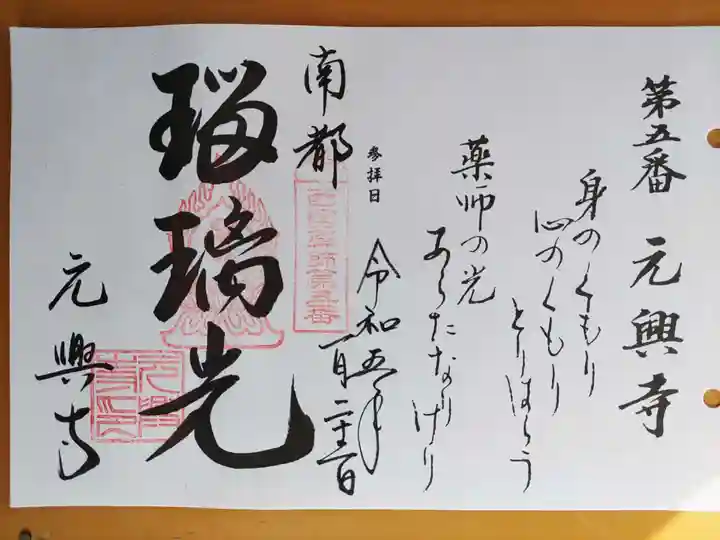 第五番 元興寺
身のくもり
心のくもり
とりはらう
薬師の光
あらたなりけり
参拝日
令和五年
一月
西国薬師第五番
南都
瑠璃光
元興寺